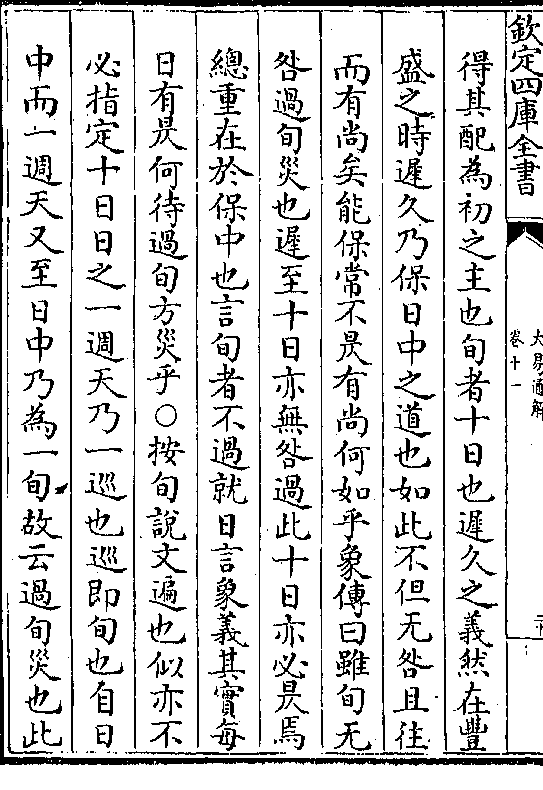 欽定四庫全書
大易通解
卷十一
得其配為初之主也旬者十日也遲久之義然在豐
盛之時遲久乃保日中之道也如此不但无咎且往
而有尚矣能保常不昃有尚何如乎象傳曰雖旬无
咎過旬災也遲至十日亦無咎過此十日亦必昃焉
總重在於保中也言旬者不過就日言象義其實每
日有昃何待過旬方災乎○按旬說文遍也似亦不
必指定十日日之一週天乃一巡也巡即旬也自日
中而一週天又至日中乃為一旬故云過旬災也此